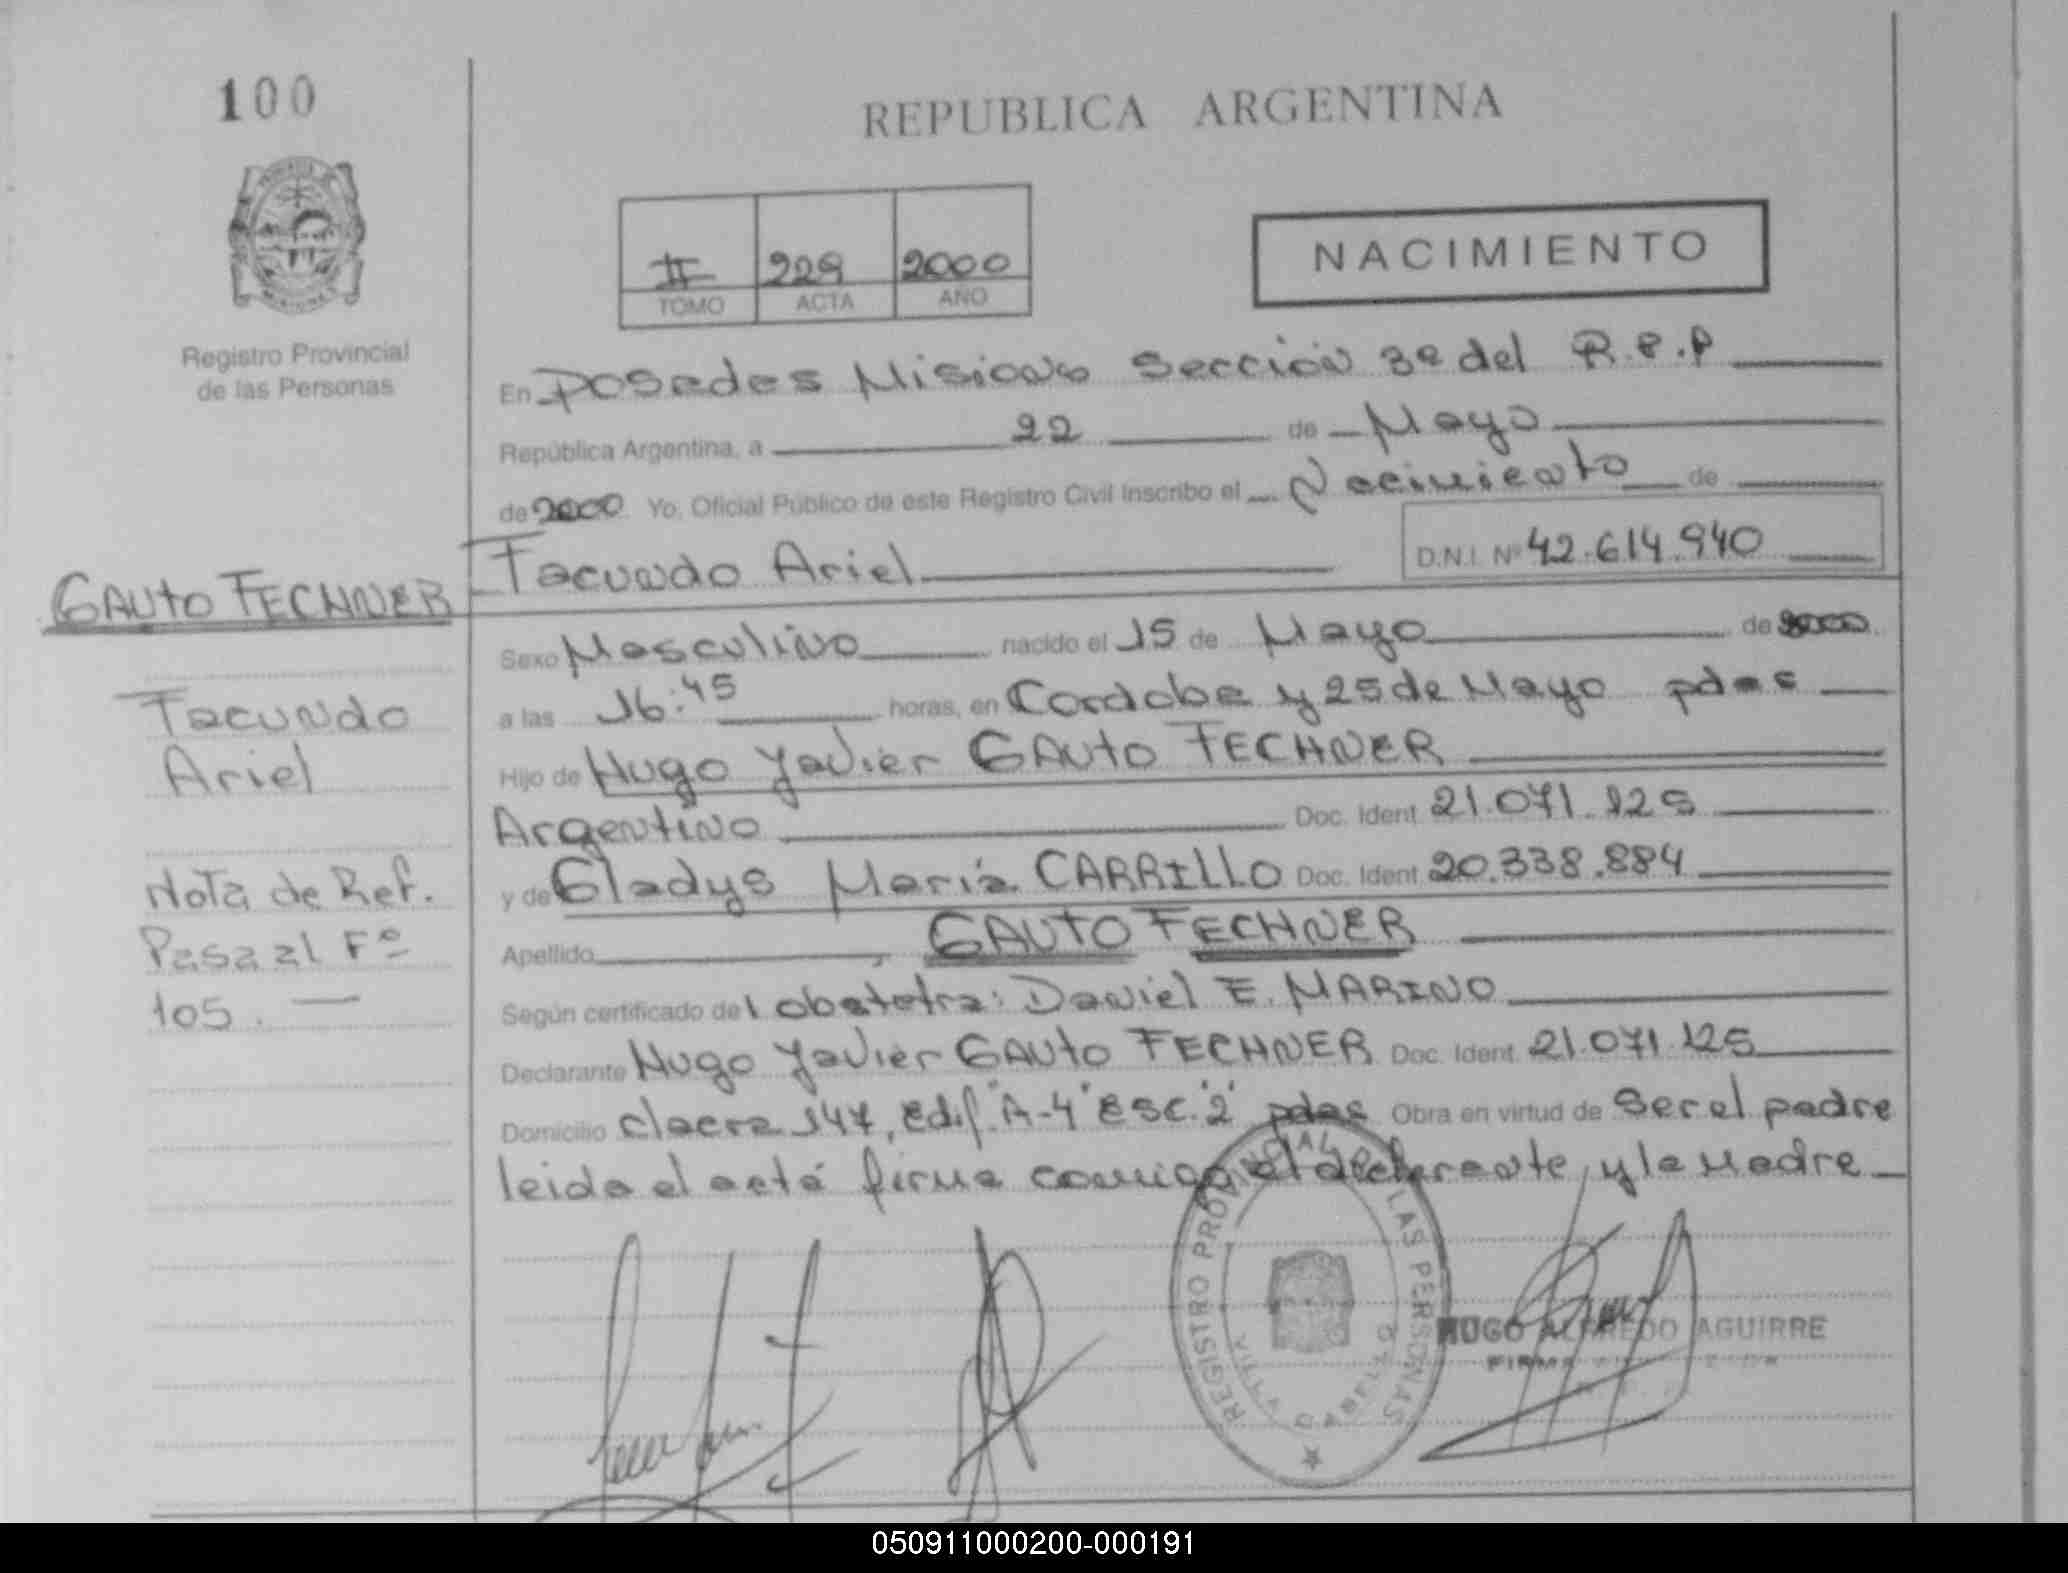 100
REPUBLICA ARGENTINA
II 229 2000
TOMO ACTA AÑO
NACIMIENTO
Registro Provincial
de las Personas
En Posadas Misiones Sección 3ª del R.P.P
República Argentina, a 22 de Mayo
de 2000 Yo, Oficial Público de este Registro Civil Inscribo el Nacimiento de
Facundo Ariel D.N.I. Nº 42.614.940
GAUTO FECHNER
Sexo Masculino nacido el 15 de Mayo de 2000
Facundo
Ariel
a las 16:45 horas, en Cordoba y 25 de Mayo pdas
Hijo de Hugo Javier GAUTO FECHNER
Argentino Doc. Ident 21.071.125
y de Gladys María CARRILLO Doc. Ident 20.338.884
Nota de Ref.
Pasa al Fº
105.
Apellido GAUTO FECHNER
Según certificado del obstetra: Daniel E. MARINO
Declarante Hugo Javier GAUTO FECHNER Doc. Ident 21.071.125
Domicilio 147, edif. "A-4" esc. "2" pdas Obra en virtud de Ser el padre
leida el acta firma conmigo el declarante, y la Madre
REGISTRO PROVINCIAL DE LAS PERSONAS
VILLA CABELLO
HUGO ALFREDO AGUIRRE
050911000200-000191